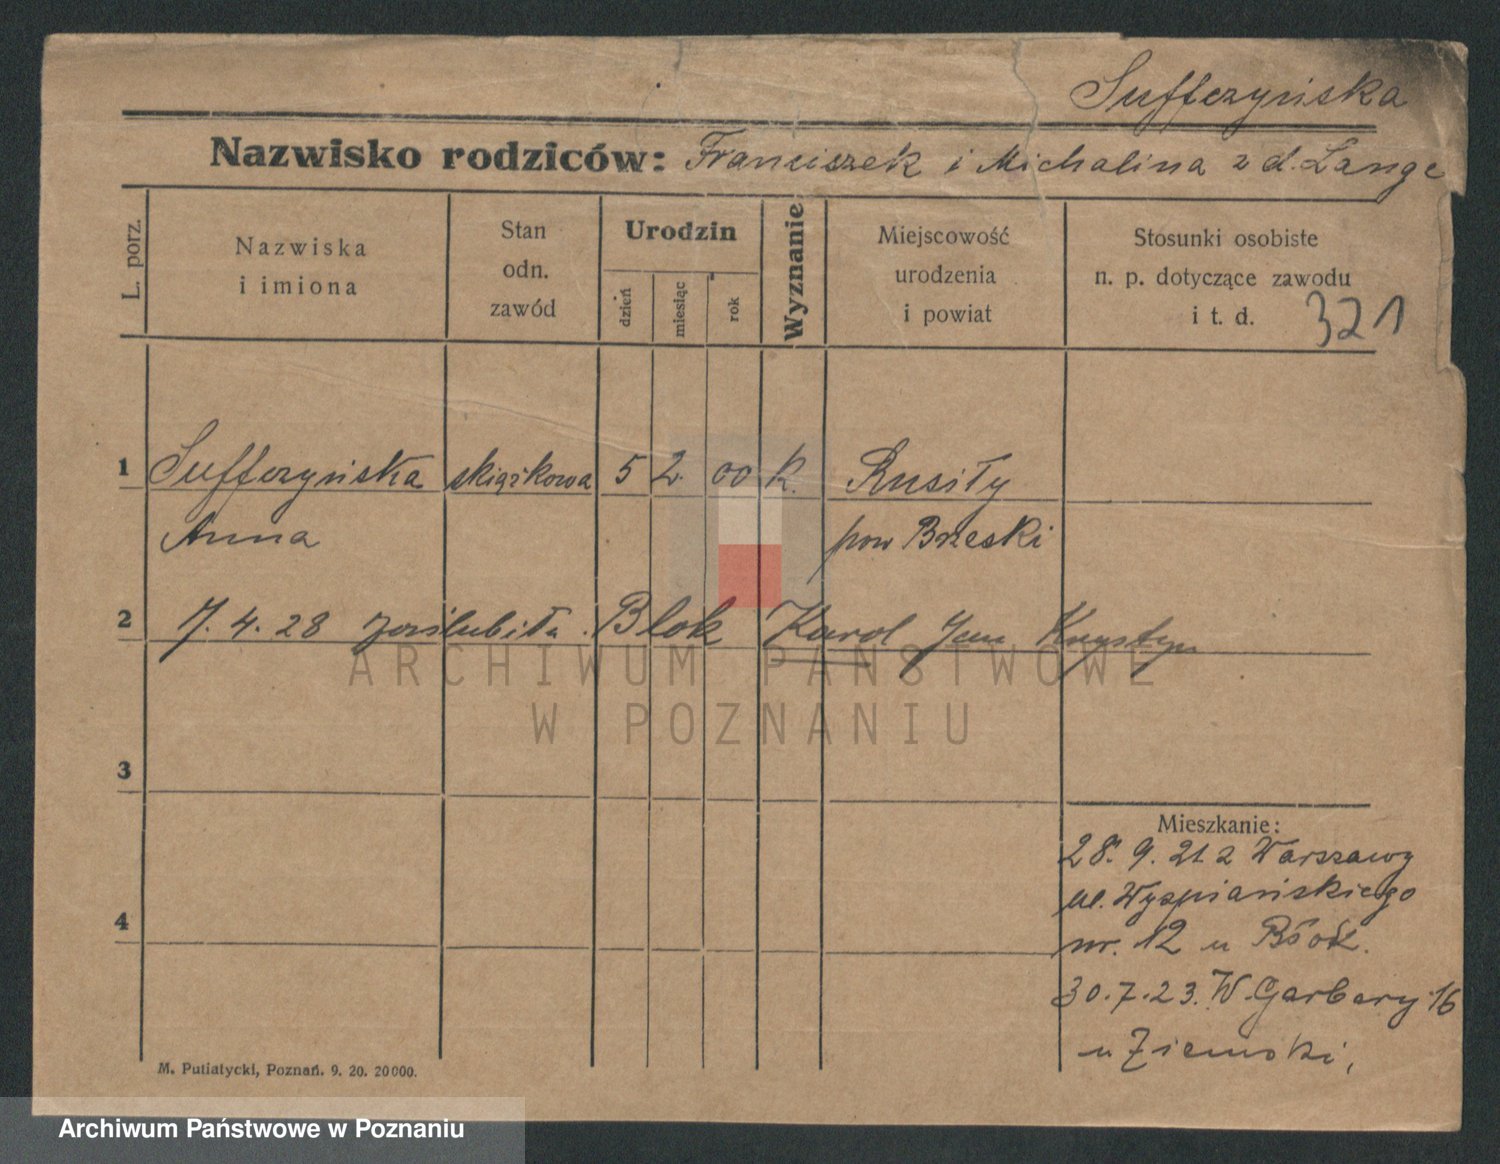 Sufferzyńska
Nazwisko rodziców: Franciszek i Michalina z d. Lange
L. porz.
Nazwiska
i imiona
Stan
odn.
zawód
Urodzin
dzień
miesiąc
rok
Wyznanie
Miejscowość
urodzenia
i powiat
Stosunki osobiste
n. p. dotyczące zawodu
i t. d.
321
1 Sufferzyńska 5 2. 00 k.
Anna pow Brzeski
2 7. 4. 28 Blok Karol Jan Krystyn
ARCHIWUM PAŃSTWOWE
W POZNANIU
3
Mieszkanie:
28. 9. 21 z Warszawy
ul. Wyspiańskiego
4
nr. 12 u
30.7.23. W. Garbary 16
u Ziemski,
M. Putiatycki, Poznań. 9. 20. 20000.
Archiwum Państwowe w Poznaniu